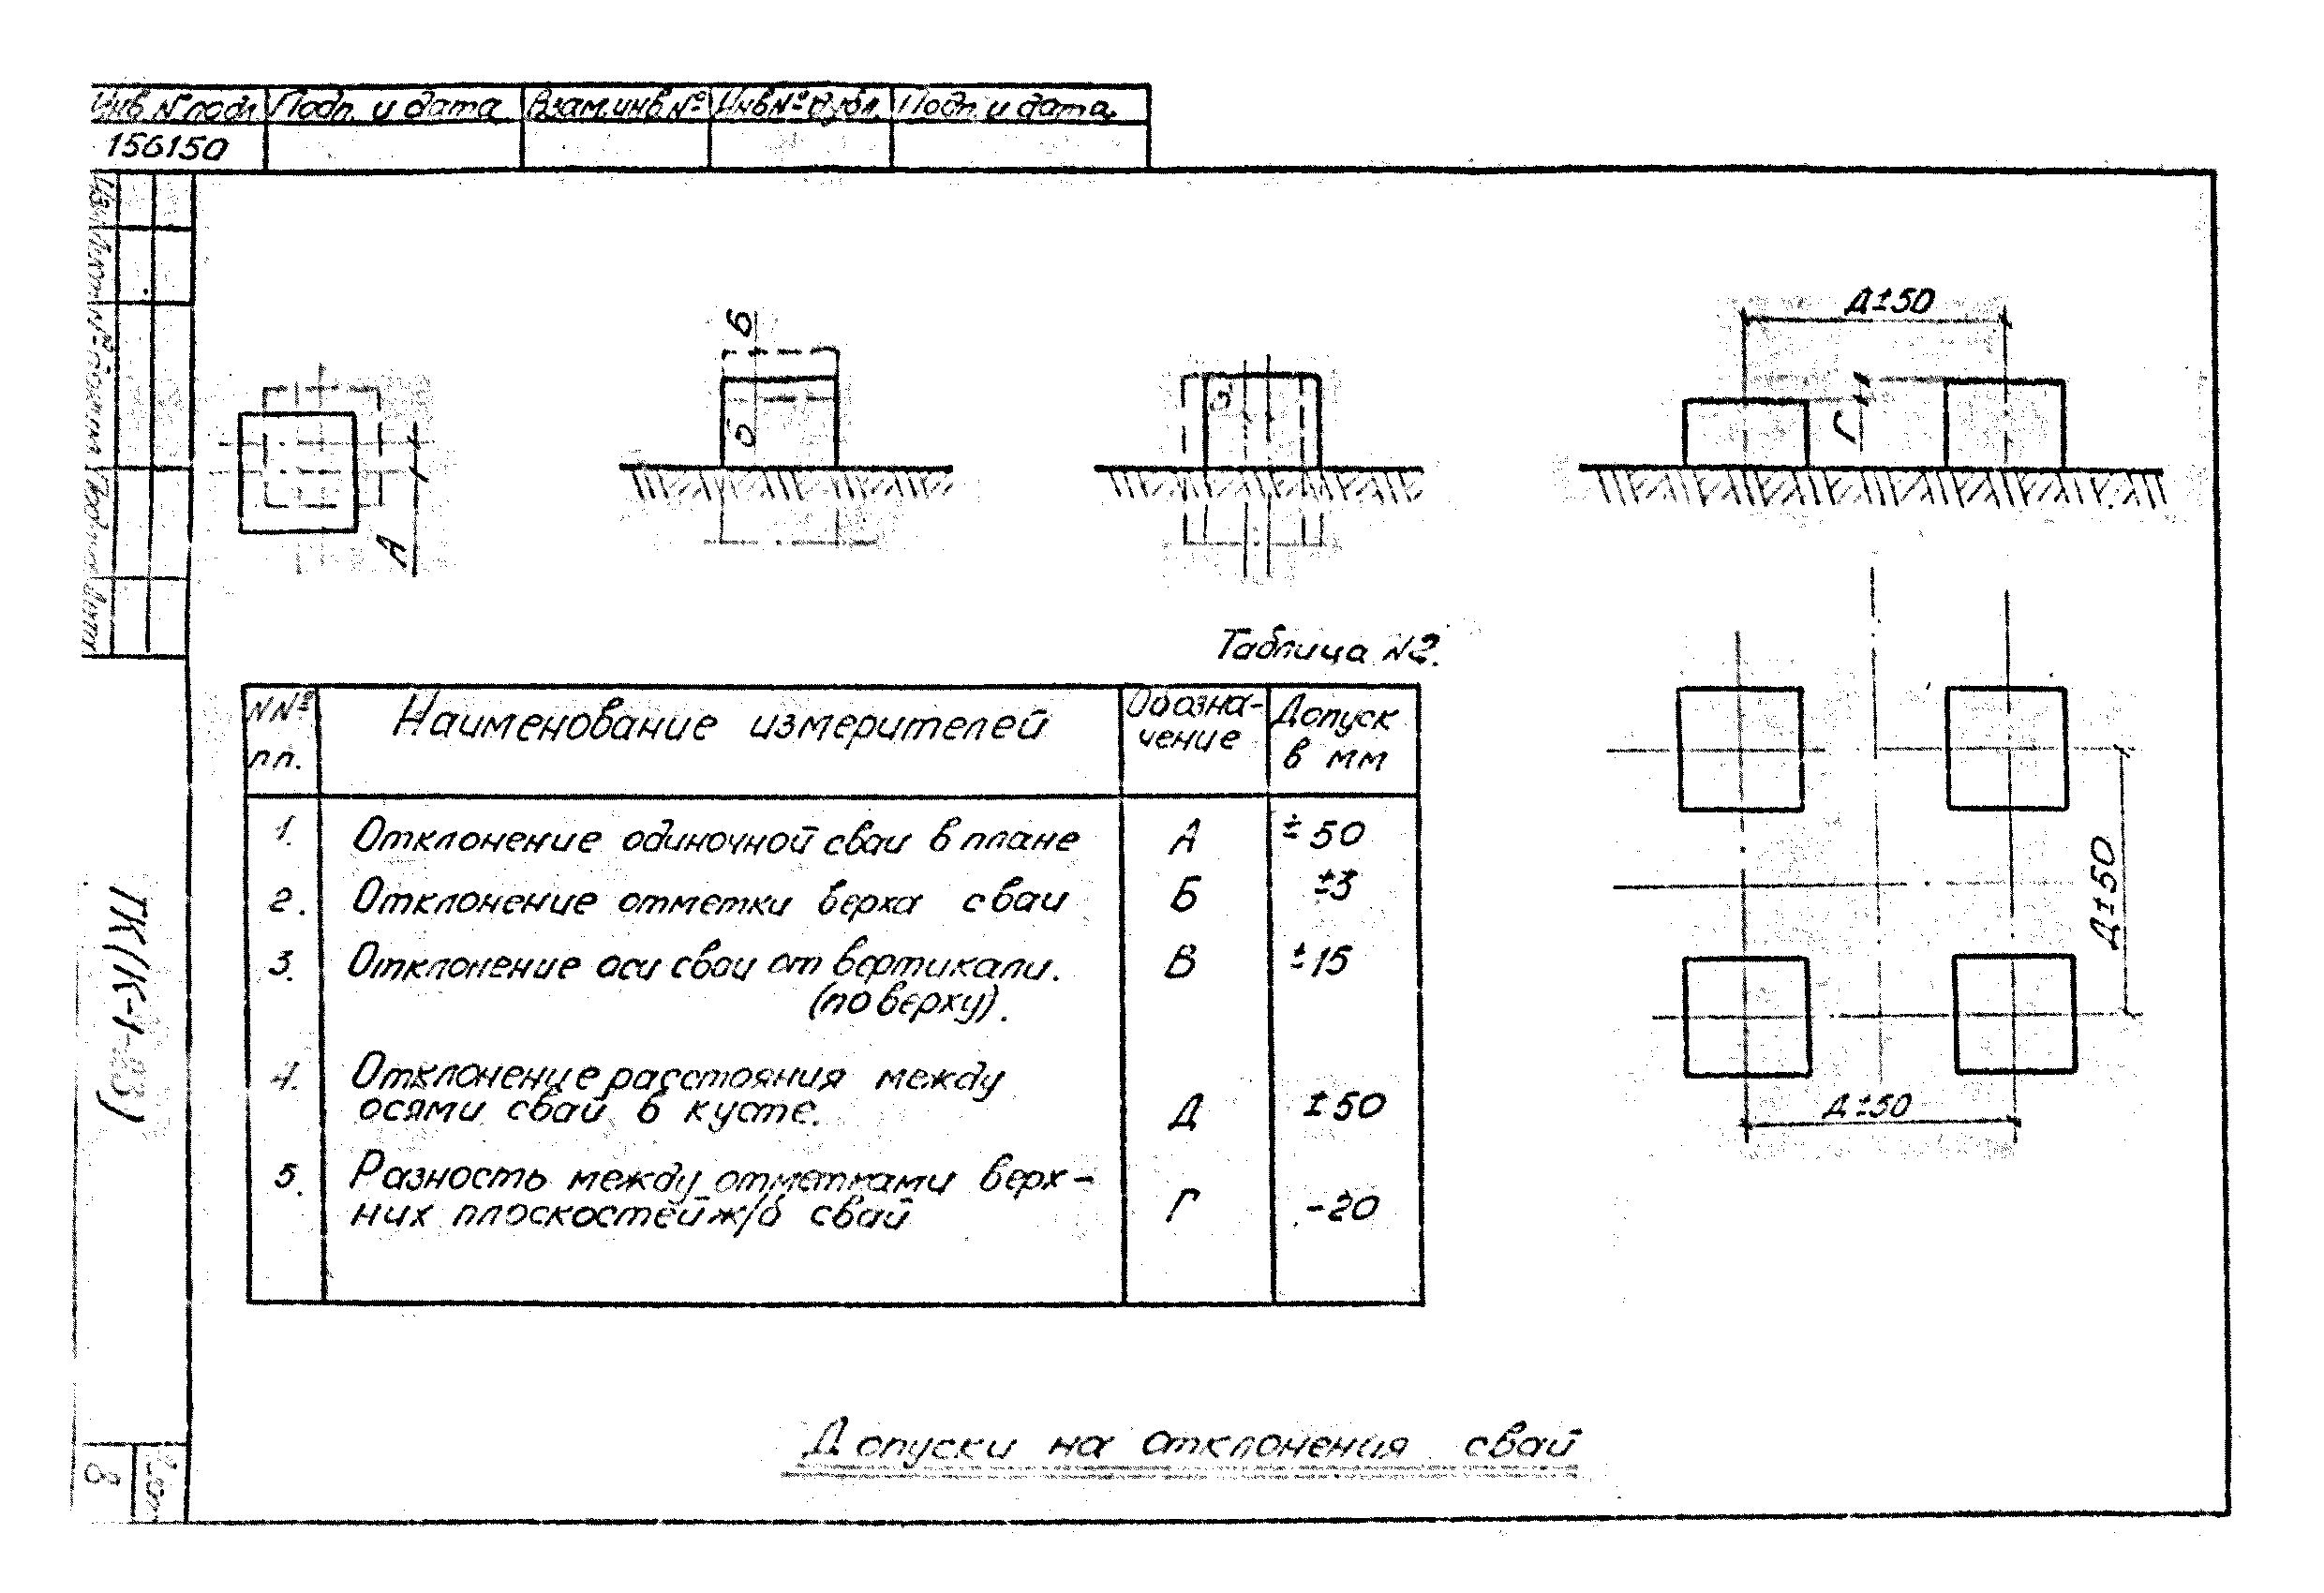 Инв N подл. Подп. и дата Взам.инв.№ Инв№ дубл. Подп. и дата
156150
Д±50
б
б
Г
А
Таблица N2.
NNº пп. Наименование измерителей Обозна-чение Допуск в мм
1. Отклонение одиночной сваи в плане А ±50
2. Отклонение отметки верха сваи Б ±3
3. Отклонение оси сваи от вертикали. В ±15
(по верху).
4. Отклонение расстояния между
осями свай в кусте. Д ±50
5. Разность между отметками верх-
них плоскостей ж/б свай Г -20
Д±50
Д±50
Допуски на отклонения свай
8